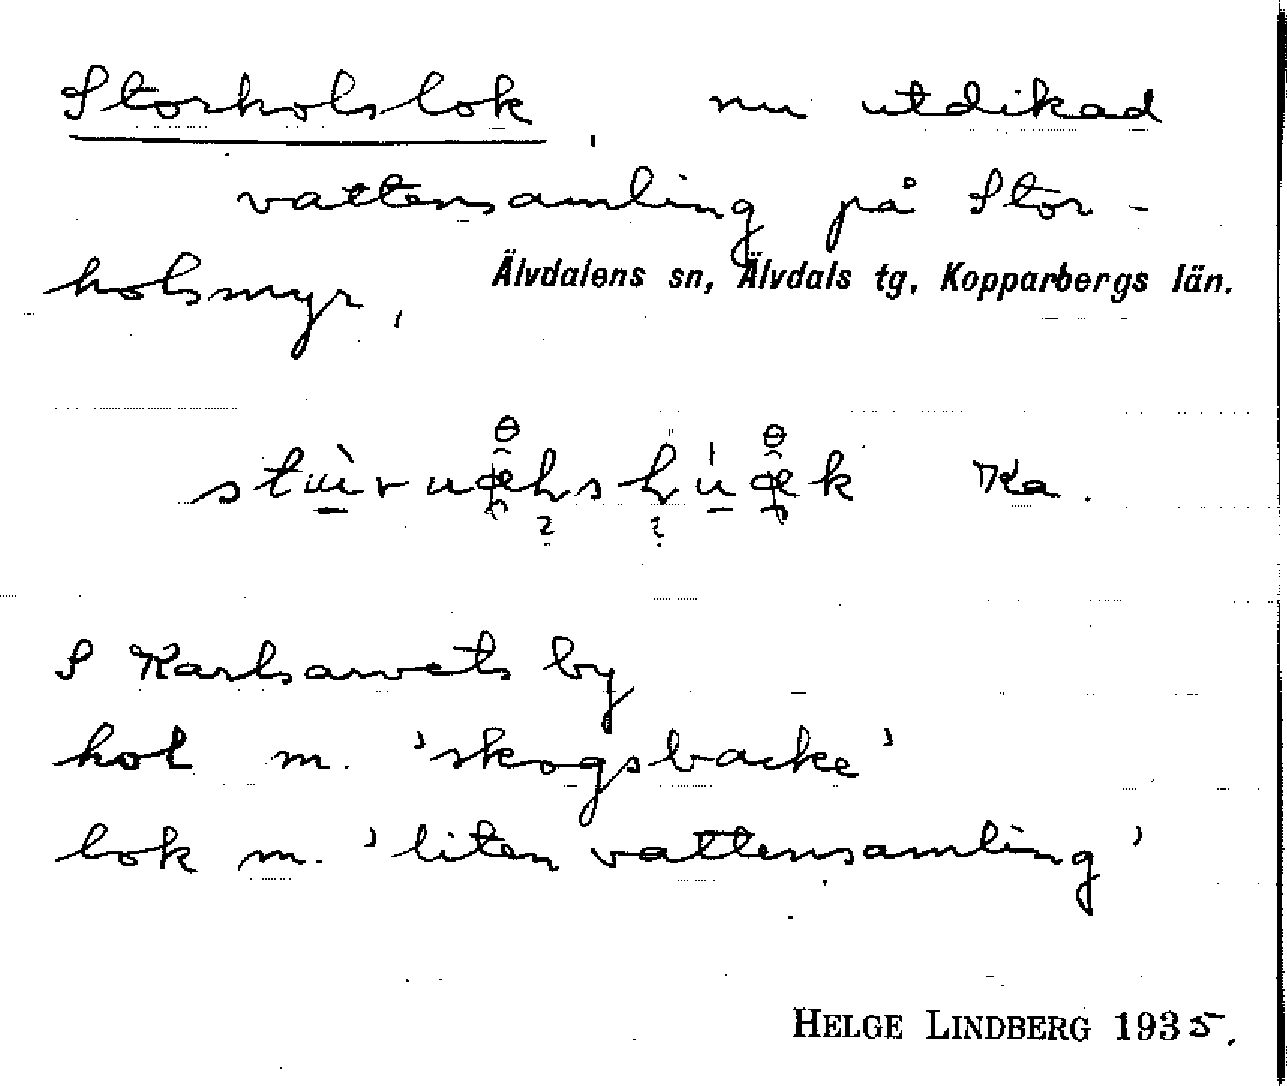 Storholslok, nu utdikad
vattensamling på Stor-
holsmyr,
Älvdalens sn, Älvdals tg, Kopparbergs län.
Ka.
S Karlsarvets by
hol m. 'skogsbacke'
lok m. 'liten vattensamling'
HELGE LINDBERG 1935.